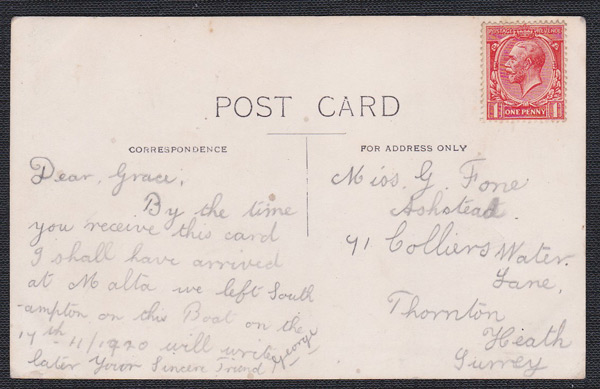 POSTAGE REVENUE
1 ONE PENNY 1
POST CARD
CORRESPONDENCE
FOR ADDRESS ONLY
Dear Grace,
By the time
you receive this card
I shall have arrived
at Malta we left South
-ampton on this Boat on the
17th 11/1920 will write
later Your Sincere Friend George
Miss G. Fone
Ashstead.
71 Colliers Water
Lane,
Thornton
Heath
Surrey